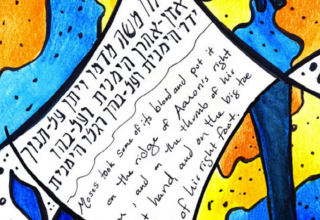 משה מדמו ויתן על־תנוך
אזן־אהרן הימנית ועל־בהן
ידו הימנית ועל־בהן רגלו הימנית
Moses took some of its blood and put it
on the ridge of Aaron's right
, and on the thumb of his
t hand and on the big toe
of his right foot.